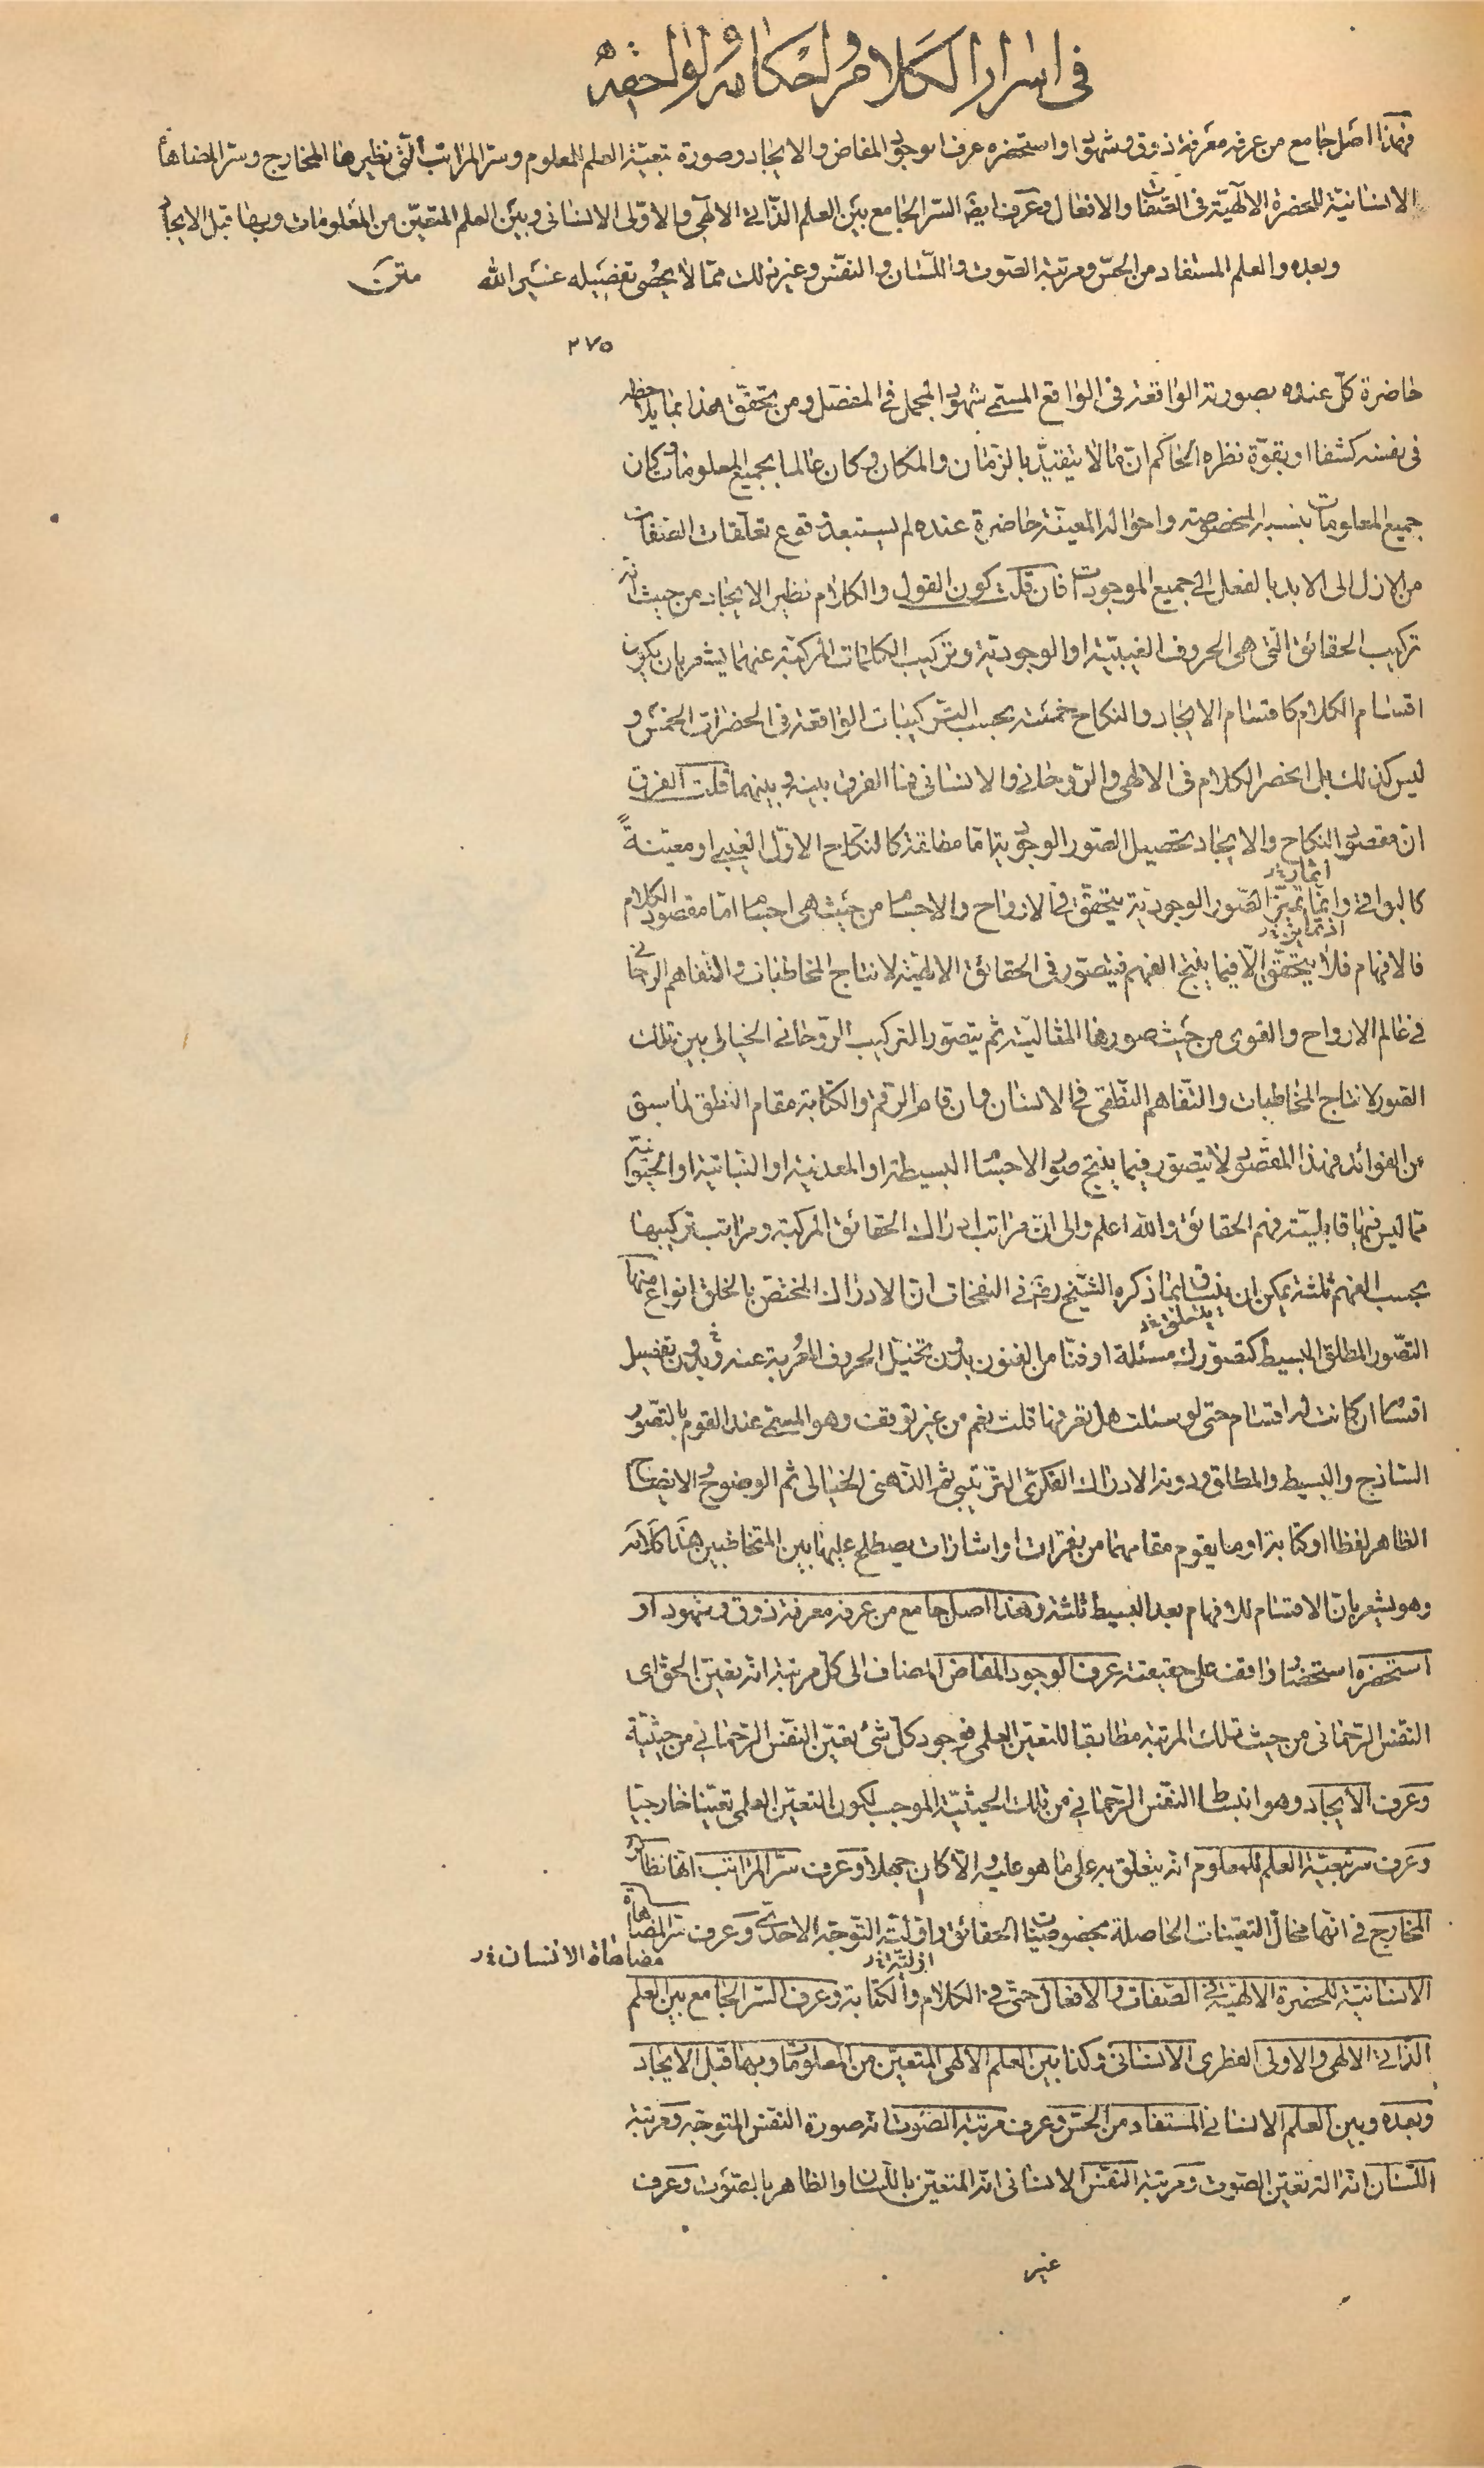 فى اسرار الكلام واحكامه ولواحقه
فهذا اصل جامع من عرفه معرفة ذوق وشهود او استحضره عرف الوجود المفاض والايجاد وصورة تبعيّة العلم للمعلوم وسرّ المراتب الّتى نظيرها المخارج وسرّ المضاهاة
الانسانيّة للحضرة الالٓهيّة فى الصّفات والافعال وعرف ايضا السّر الجامع بين العلم الذّاتى الالٓهى والاوّلى الانسانى وبين العلم المتعيّن من المعلومات وبها قبل الايجاد
وبعده والعلم المستفاد من الحسّ ومرتبة الصّوت واللّسان والنفس وغير ذلك ممّا لا يحصى تفصيله غير الله متن
٢٧٥
حاضرة كلّ عنده بصورته الواقعة فى الواقع المسمّى شهود المجمل فى المفصّل ومن تحقّق هذا بما
فى نفسه كشفا او بقوّة نظره الحاكم انّ ما لا يتقيّد بالزّمان والمكان وكان عالما بجميع المعلومات وكان
جميع المعلومات بنسبه المخصوصة واحواله المعيّنة حاضرة عنده لم يستبعد وقوع تعلّقات الصّفات
من الازل الى الابد بالفعل الى جميع الموجودات فان قلت كون القول والكلام نظير الايجاد من حيث انّه
تركيب الحقائق الّتى هى الحروف الغيبيّة او الوجوديّة وتركيب الكلمات المركّبة عنهما يشعر بان يكون
اقسام الكلام كاقسام الايجاد والنكاح خمسة بحسب التركيبات الواقعة فى الحضرات الخمس و
ليس كذلك بل انحصر الكلام فى الالهى والرّوحانى والانسانى فما الفرق بينه وبينهما قلت الفرق
ان مقصود النكاح والايجاد تحصيل الصّور الوجوديّة امّا مطلقة كالنّكاح الاوّل الغيبى او معيّنةً
كالبواقى وانّما تميّز الصّور الوجوديّة يتحقّق فى الارواح والاجسام من حيث هى اجسام امّا مقصود الكلام
فالافهام فلا يتحقّق الّا فيما ينتج الفهم فيتصوّر فى الحقائق الالهيّة لانتاج المخاطبات والتّفاهم الرّوحانى
فى عالم الارواح والقوى من حيث صورها المثاليّة ثم يتصوّر التركيب الرّوحانى الخيالى بين تلك
الصّور لانتاج المخاطبات والتّفاهم النّطقى فى الانسان وان قام الرّقم والكتابة مقام النطق لما سبق
من الفوائد فهذا المقصود لا يتصوّر فيما ينتج صور الاجسام البسيطة او المعدنيّة او النّباتيّة او الحيوانيّة
ممّا ليس فيها قابليّة فهم الحقائق والله اعلم والى انّ مراتب ادراك الحقائق المركّبة ومراتب تركيبها
بحسب الفهم ثلثة يمكن ان ينساق بما ذكره الشّيخ رض فى النفحات انّ الادراك المختصّ بالخلق انواع منها
التّصوّر المطلق البسيط كتصوّرك مسئلة او فنّا من الفنون بدون تخيّل الحروف المعربة عنه وبدون تفصيل
اقسام ان كانت له اقسام حتى لو سئلت هل تعرفها قلت نعم من غير توقف وهو المسمّى عند القوم بالتصوّر
السّاذج والبسيط والمطلق ودونه الادراك الفكرىّ التّرتيبى ثم الذّهنى الخيالى ثم الوضوح الايضاح
الظاهر لفظا او كتابة او ما يقوم مقامهما من نقرات او اشارات يصطلح عليها بين المتخاطبين هذا كلامه
وهو يشعر بانّ الاقسام للافهام بعد البسيط ثلثة وهذا اصل جامع من عرفه معرفة ذوق وشهود او
استحضره استحضار واقف على حقيقته عرف الوجود المفاض المضاف الى كلّ مرتبة انّه تعيّن الحقّ اى
النّفس الرّحمانى من حيث تلك المرتبة مطابقا للتعيّن العلمى فوجود كلّ شئ تعيّن النّفس الرّحمانى من حيثيّة
وعرف الايجاد وهو انبساط النّفس الرّحمانى من تلك الحيثيّة الموجب لكون التعيّن العلمى تعيّنا خارجيّا
وعرف سرّ تبعيّة العلم للمعلوم انّه يتعلّق به على ما هو عليه والّا كان جهلا وعرف سرّ المراتب انّها نظائر
المخارج فى انّها محالّ التعيّنات الحاصلة بخصوصيّات الحقائق واقليّة التّوجّه الاحدىّ وعرف سرّ المضاهاة
مضاهاة الانسان
الانسانيّة للحضرة الالهيّة فى الصّفات والافعال حتّى فى الكلام والكتابة وعرف السّر الجامع بين العلم
الذّاتى الالهى والاولى الفطرى الانسانى وكذا بين العلم الالهى المتعيّن من المعلومات وبها قبل الايجاد
وبعده وبين العلم الانسانى المستفاد من الحسّ وعرف مرتبة الصّوت انّه صورة النفس المتوجّه ومرتبة
اللّسان انّه الة تعيّن الصّوت ومرتبة النفس الانسانى انّه المتعيّن باللّسان والظاهر بالصّوت وعرف
غير